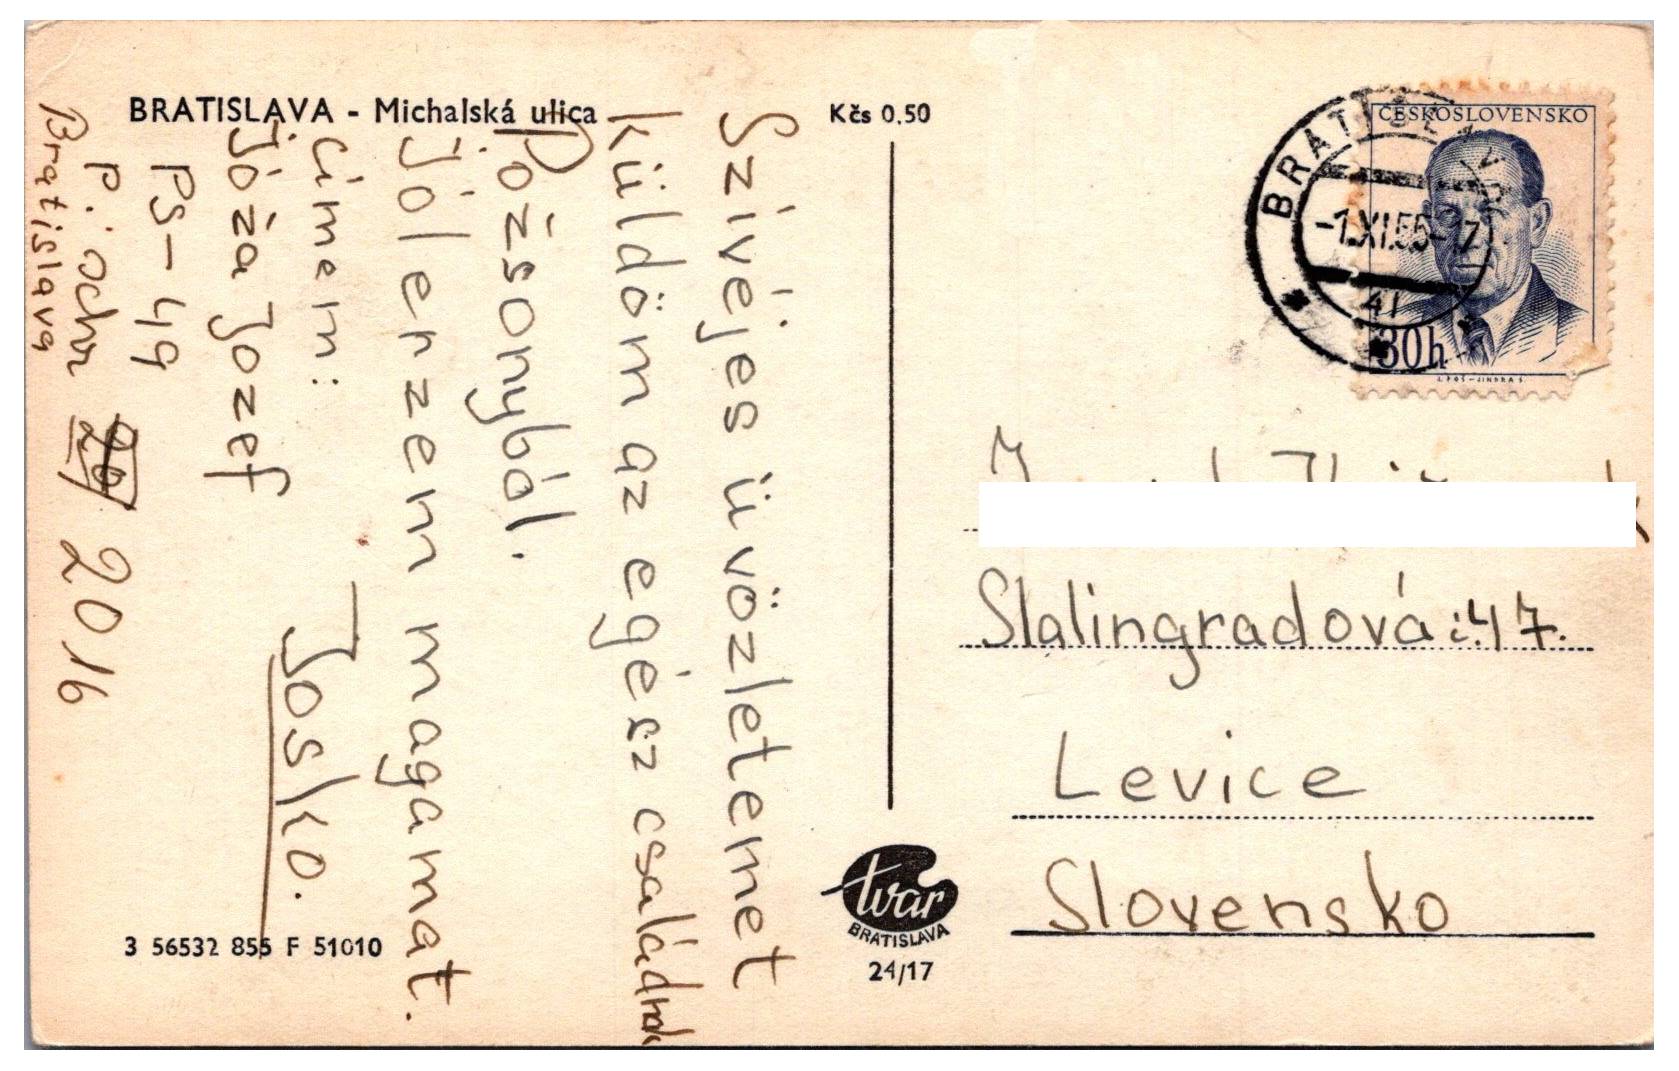 BRATISLAVA - Michalská ulica
Kčs 0.50
Szívéjes üvözletemet
küldöm az egész családnak
Pozsonyból.
Jól erzem magamat.
Címem:
Józa Jozef
PS-49
P. ochr
2016
Bratislava
Josko.
3 56532 855 F 51010
tvar
BRATISLAVA
24/17
ČESKOSLOVENSKO
30h
BRATISLAVA
-1.XI.55-17
41
Stalingradová č.47.
Levice
Slovensko